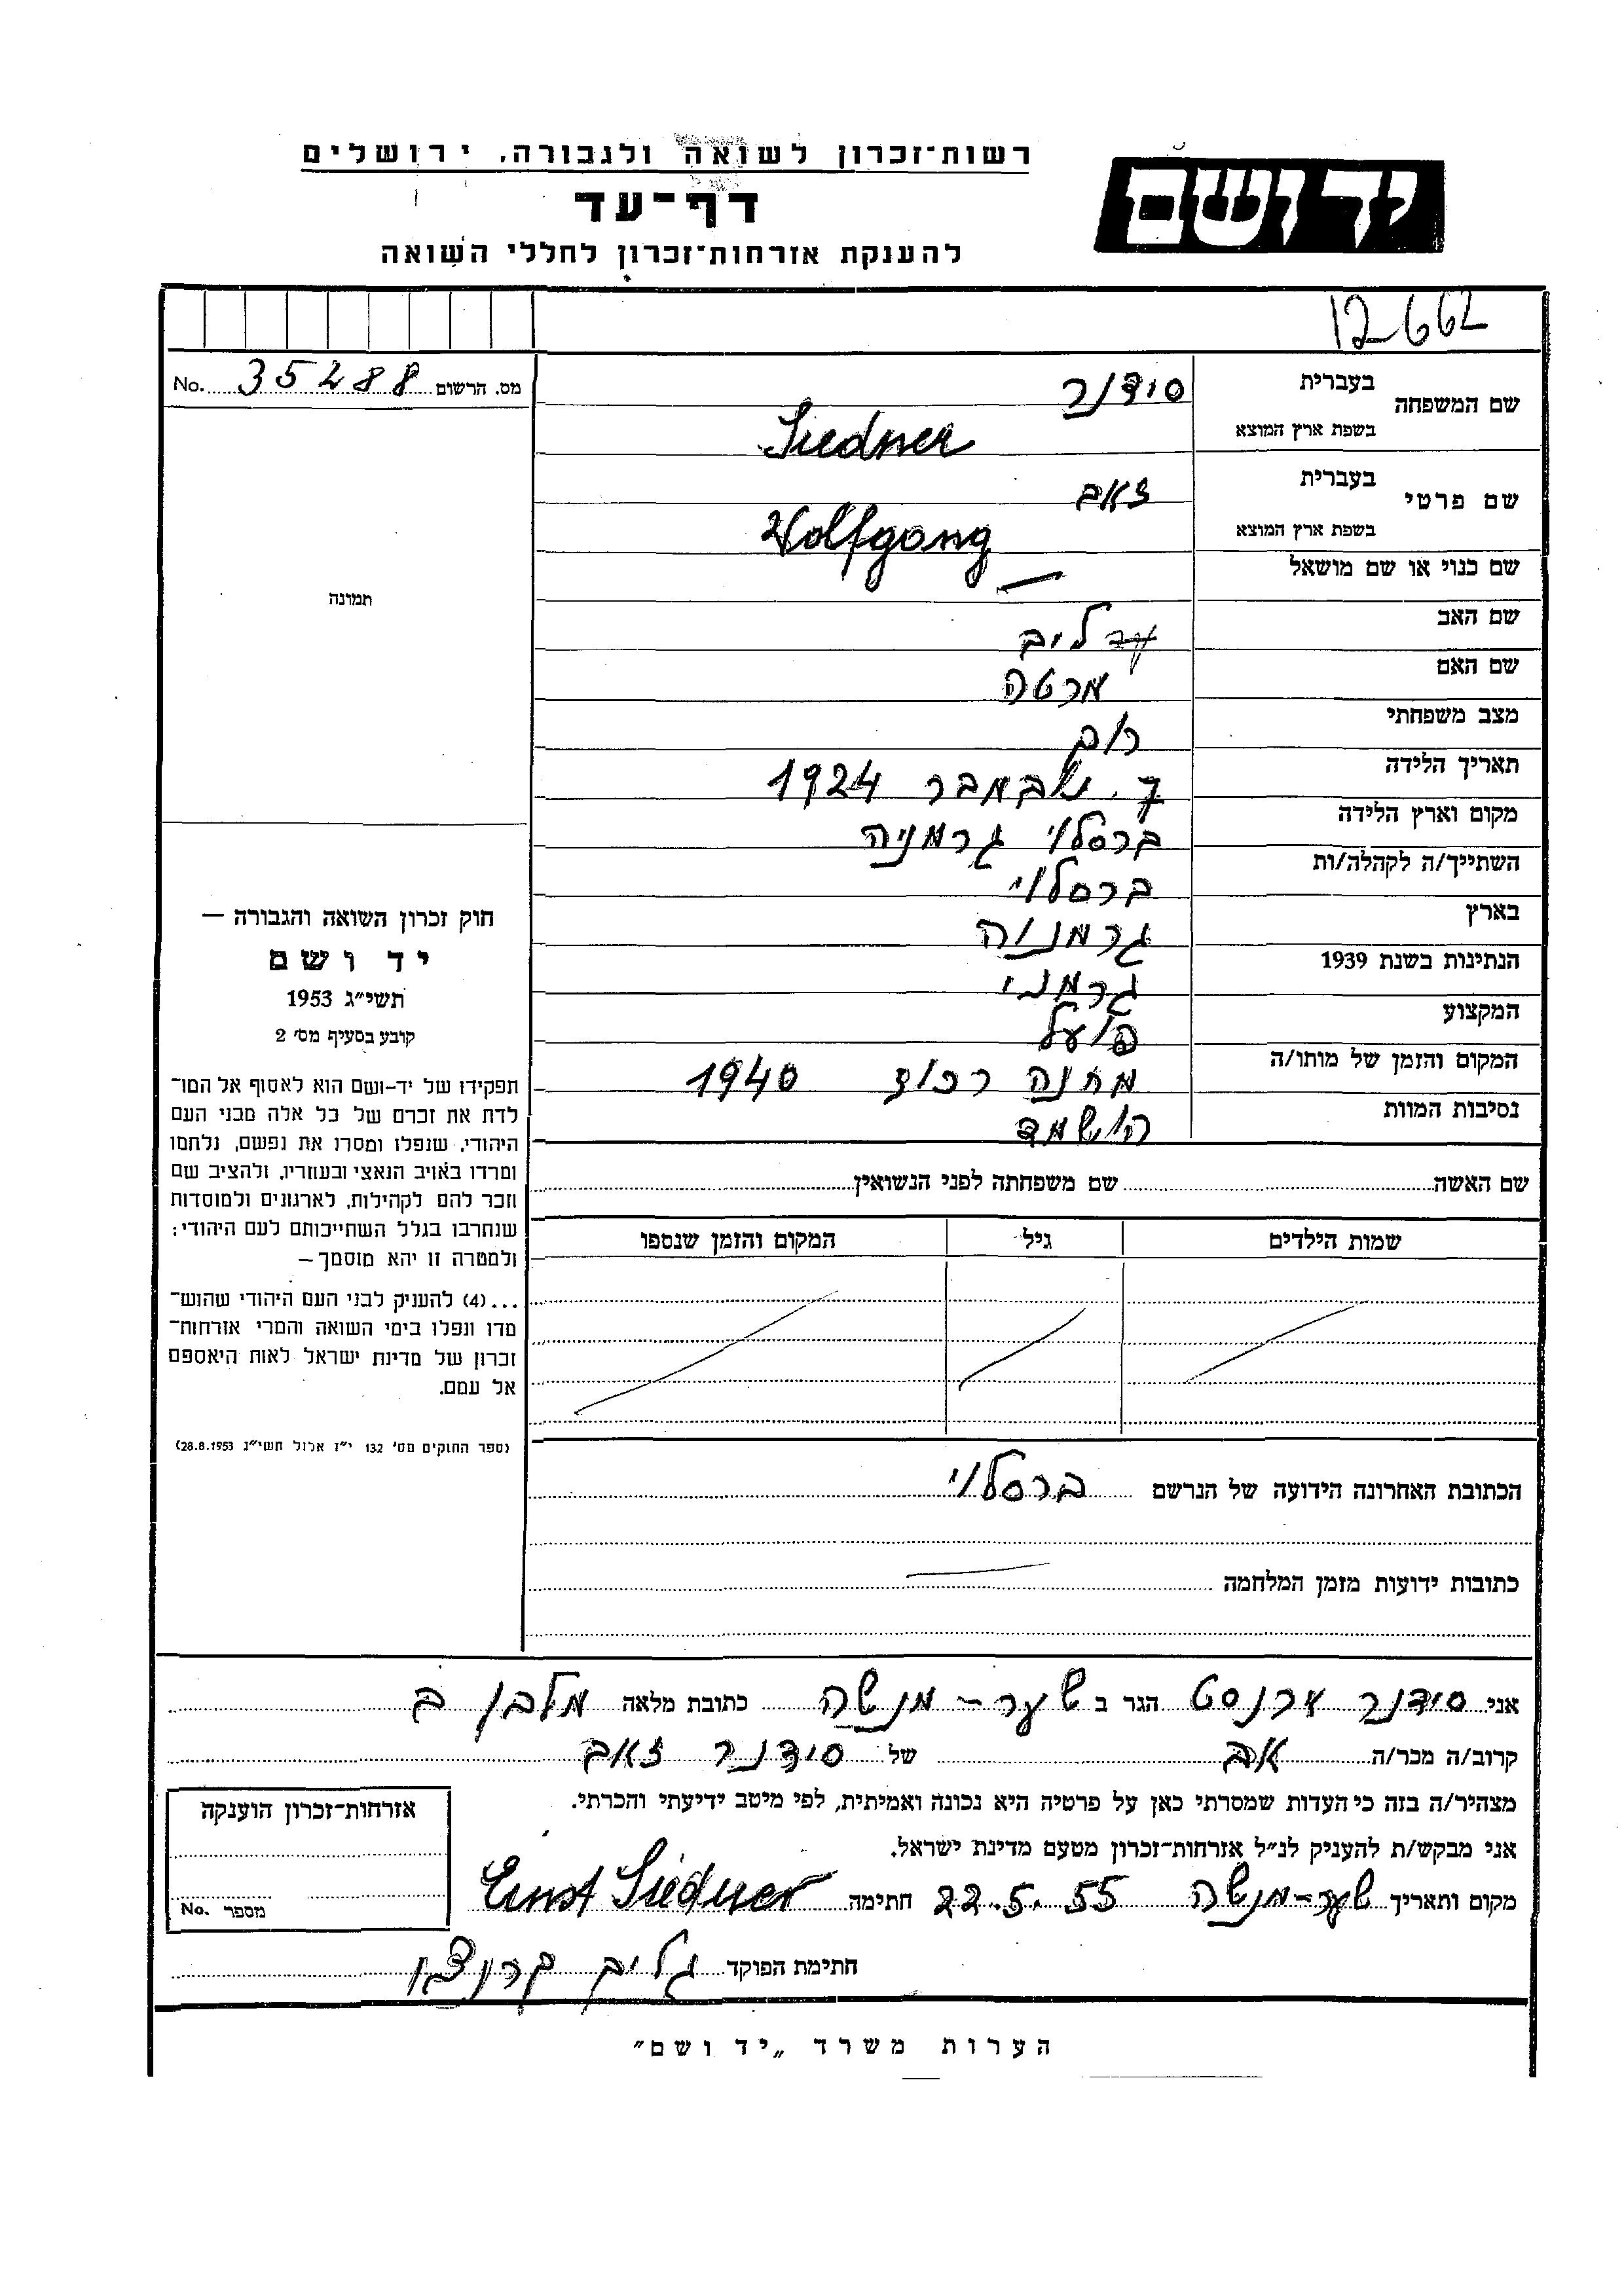 רשות־זכרון לשואה ולגבורה, ירושלים
יד ושם
דף־עד
להענקת אזרחות־זכרון לחללי השואה
12662
מס. הרשום 35288 No.
שם המשפחה בעברית סידנר
בשפת ארץ המוצא Siedner
שם פרטי בעברית זאב
בשפת ארץ המוצא Wolfgang
שם כנוי או שם מושאל —
שם האב ליב
שם האם מרטה
מצב משפחתי רוק
תאריך הלידה 7. נובמבר 1924
מקום וארץ הלידה ברסלוי גרמניה
השתייך/ה לקהלה/ות ברסלוי
בארץ גרמניה
הנתינות בשנת 1939 גרמני
המקצוע פועל
המקום והזמן של מותו/ה מחנה רכוז 1940
נסיבות המוות הושמד
שם האשה שם משפחתה לפני הנשואין
שמות הילדים גיל המקום והזמן שנספו
תמונה
חוק זכרון השואה והגבורה —
יד ושם
תשי״ג 1953
קובע בסעיף מס׳ 2
תפקידו של יד-ושם הוא לאסוף אל המו־
לדת את זכרם של כל אלה מבני העם
היהודי, שנפלו ומסרו את נפשם, נלחמו
ומרדו באויב הנאצי ובעוזריו, ולהציב שם
וזכר להם לקהילות, לארגונים ולמוסדות
שנחרבו בגלל השתייכותם לעם היהודי;
ולמטרה זו יהא מוסמך—
...(4) להעניק לבני העם היהודי שהוש־
מדו ונפלו בימי השואה והמרי אזרחות־
זכרון של מדינת ישראל לאות היאספם
אל עמם.
(ספר החוקים מס׳ 132 י״ז אלול תשי״ג 28.8.1953)
הכתובת האחרונה הידועה של הנרשם ברסלוי
כתובות ידועות מזמן המלחמה —
אני סידנר ארנסט הגר ב שער-מנשה כתובת מלאה מלבן ב
קרוב/ה מכר/ה אב של סידנר זאב
מצהיר/ה בזה כי העדות שמסרתי כאן על פרטיה היא נכונה ואמיתית, לפי מיטב ידיעתי והכרתי.
אני מבקש/ת להעניק לנ״ל אזרחות־זכרון מטעם מדינת ישראל.
מקום ותאריך שער-מנשה 22.5.55 חתימה Ernst Siedner
חתימת הפוקד
אזרחות־זכרון הוענקה
מספר No.
הערות משרד „יד ושם״